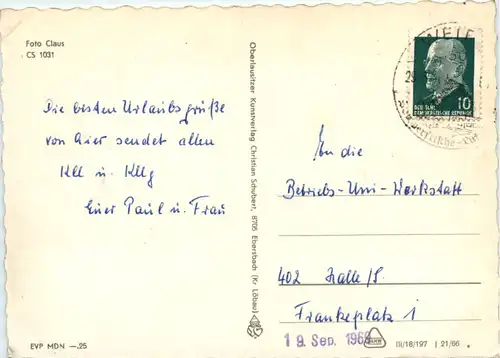 Foto Claus
CS 1031
Die besten Urlaubsgrüße
von hier sendet allen
Kll u. Kllg
Euer Paul u. Frau
EVP MDN —.25
Oberlausitzer Kunstverlag Christian Schubert, 8705 Ebersbach (Kr Löbau)
10
DEUTSCHE
DEMOKRATISCHE REPUBLIK
An die
Betriebs-Uni-Werkstatt
402 Halle/S.
Frankeplatz 1
19. Sep. 1966
III/18/197 | 21/66